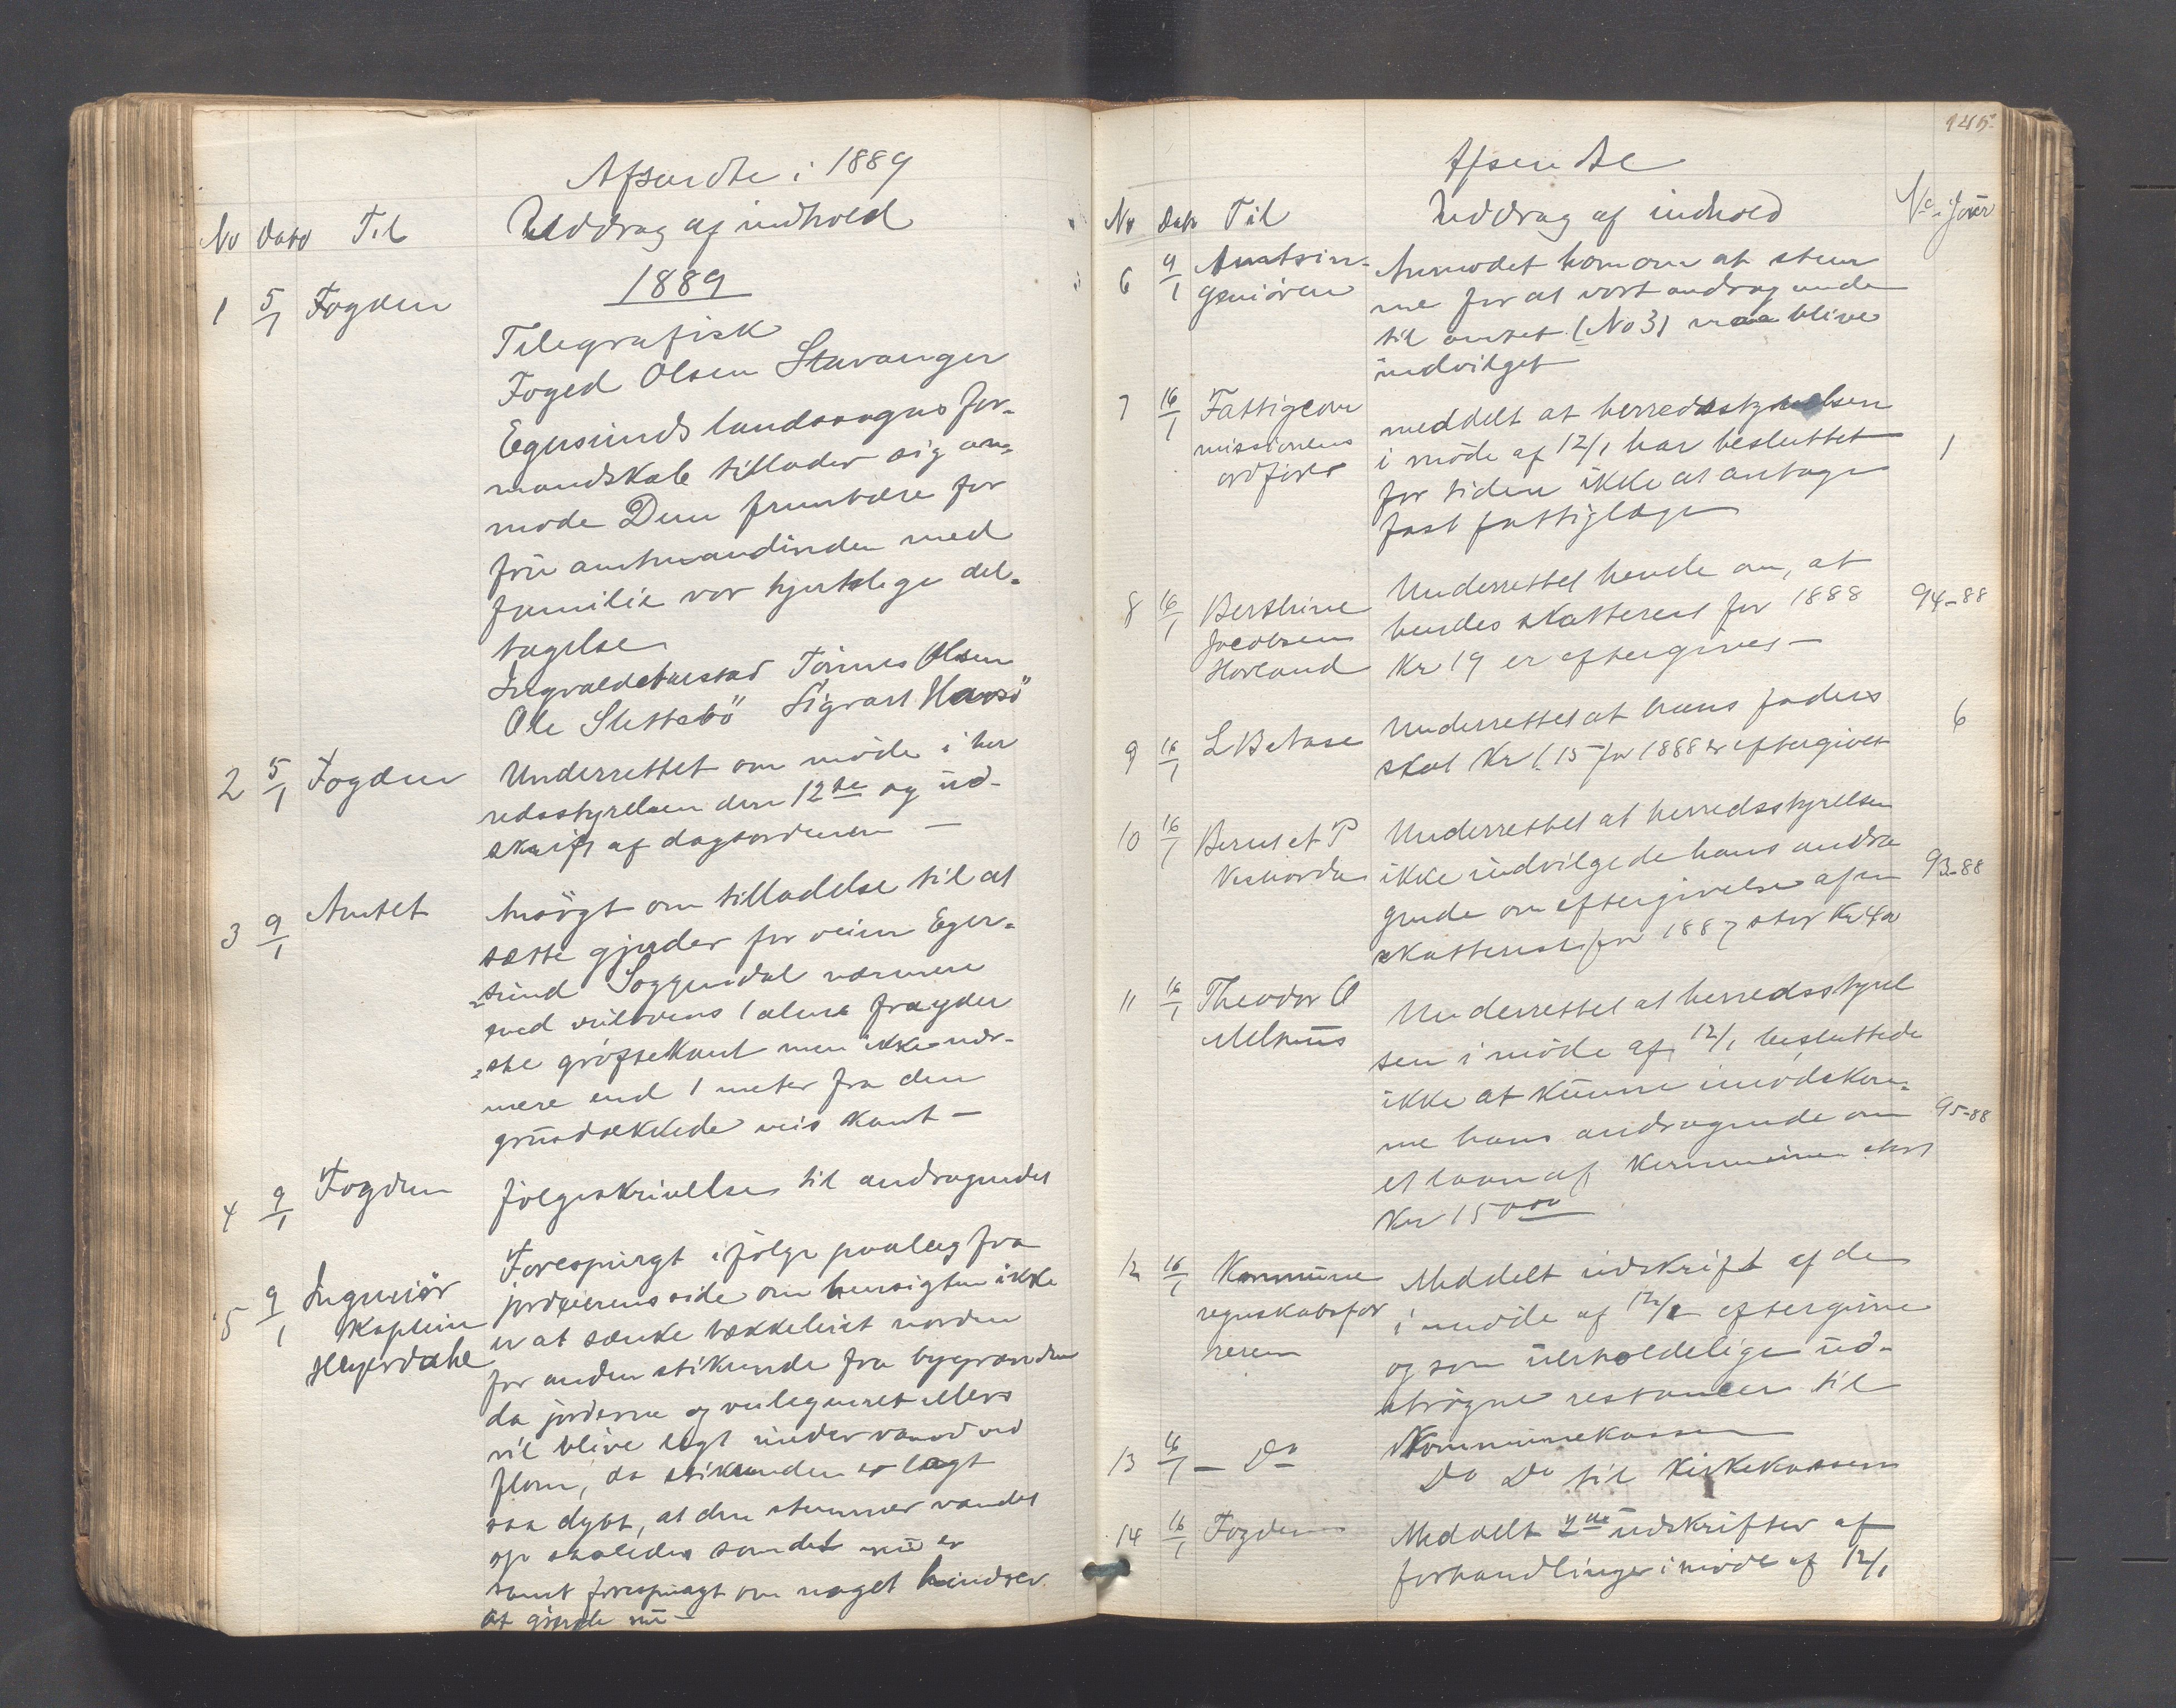 Afsendte i 1889
No Dato Til Uddrag af indhold
1889
1 5/1 Fogden
Telegrafisk
Foged Olsen Stavanger
Egersunds landsogns for-
mandskab tillader sig an-
mode Dem frembære for
frü amtmandinden med
familie vor hjertelige del-
tagelse
Ole Slettebö Sigvart Havsö
2 5/1 Fogden Underrettet om möde i her
redsstyrelsen den 12te og üd-
skrift af dagsordenen —
3 9/1 Amtet Ansögt om tilladelse til at
sætte gjerder for veien Eger-
sünd Soggendal nærmere
end veilovens 1 alen fra yder
ste gröftekant men ikke nær-
mere end 1 meter fra den
grüsdækkede veis kant —
4 9/1 Fogden fölgeskrivelse til andragendet
5 9/1 Ingeniör Kaptein Heyerdahl
Forespurgt ifölge paalæg fra
jordeierens side om hensigten ikke
er at sænke bækkeleiet norden
for anden stikrende fra bygrænden
da jorderne og veilegemet ellers
vil blive lagt ünder vand ved
flom, da stikrenden er lagt
saa dybt, at den stemmer vandet
op saaledes som det nü er
samt forespurgt om noget hindrer
at gjerde nü —
145.
Afsendte
No Dato Til Uddrag af indhold No i Jour
6 9/1 Amtsin-
geniören
Anmodet ham om at stem
me for at vort andragende
til amtet (No 3) maa blive
indvilget
7 16/1 Fattigcom
missionens
ordförer
meddelt at herredsstyrelsen
i möde af 12/1 har besluttet
for tiden ikke at antage
fast fattiglæge
1
8 16/1 Berthine
Jacobsen
Hovland
Underrettet hende om, at
hendes skatterest for 1888
Kr 19 er eftergivet —
94-88
9 16/1 L B Aase Underrettet at hans faders
skat Kr 1.15 for 1888 er eftergivet
6
10 16/1 Bernt P
Underrettet at herredsstyrelsen
ikke indvilgede hans andra
gende om eftergivelse af en
skatterest for 1887 stor Kr
93-88
11 16/1 Theodor O
Melhüs
Underrettet at herredsstyrel
sen i möde af 12/1 besluttede
ikke at künne imödekom-
me hans andragende om
et laan af Kommünen stort
Kr 1500
95-88
12 16/1 Kommüne
regnskabsför
reren
Meddelt üdskrift af de
i möde af 12/1 eftergivne
og som üerholdelige üd-
strögne restancer til
Kommünekassen
13 16/1 — Do Do Do til Kirkekassen
14 16/1 Fogden Meddelt 2de üdskrifter af
forhandlinger i möde af 12/1